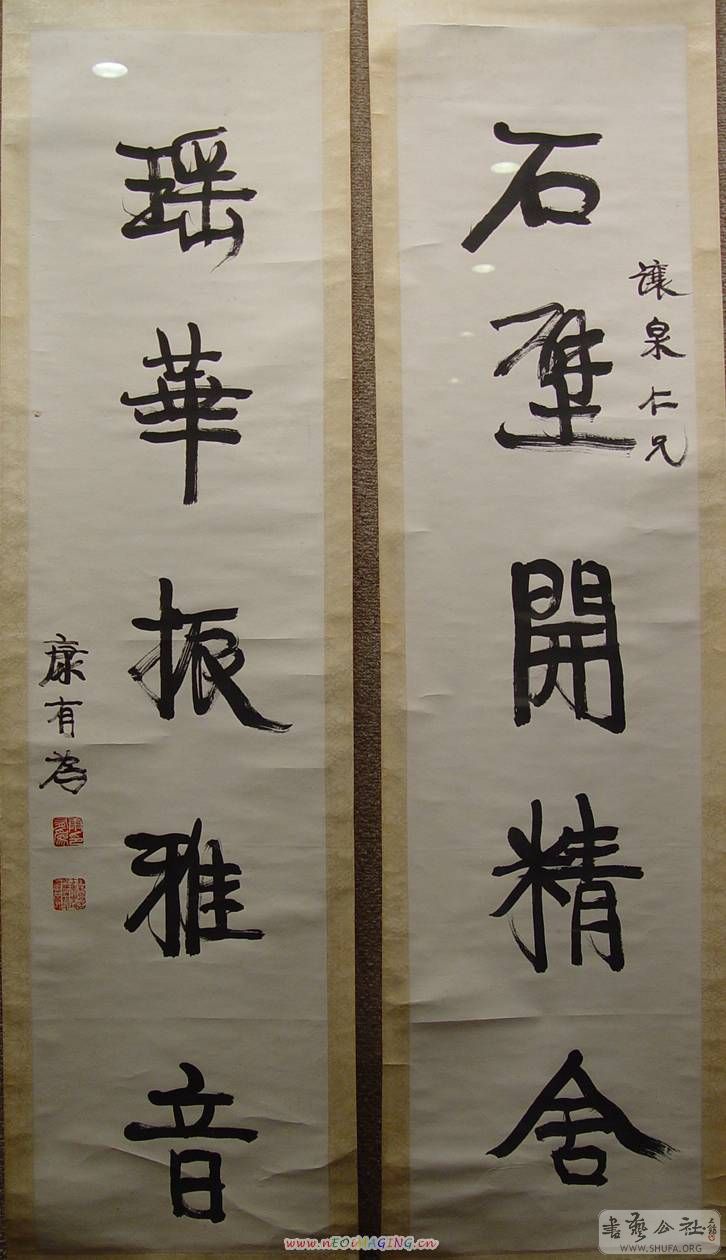 讓泉仁兄
石壁開精舍
瑤華振雅音
康有為
www.nEOiMAGING.cn
書藝公社
WWW.SHUFA.ORG